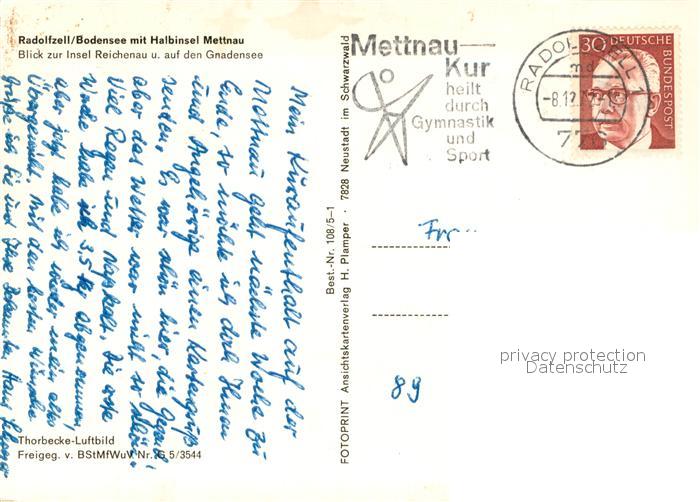 Radolfzell/Bodensee mit Halbinsel Mettnau
Blick zur Insel Reichenau u. auf den Gnadensee
Mein Kuraufenthalt auf der
Mettnau geht nächste Woche zu
Ende, so möchte ich doch Ihnen
und Angehörige einen Kartengruß
senden. Es war schön hier die Gegend
aber das Wetter war nicht so schön!
Viel Regen und Naßkalt, Die erste
Woche habe ich 3,5 kg abgenommen,
aber jetzt habe ich wieder mein altes
Übergewicht. Mit den besten Wünschen
grüße ich Sie und Ihre Bekannten Hans
Thorbecke-Luftbild
Freigeg. v. BStMfWuV Nr. G 5/3544
FOTOPRINT Ansichtskartenverlag H. Plamper · 7828 Neustadt im Schwarzwald
Best.-Nr. 108/5-1
Mettnau-
Kur
heilt
durch
Gymnastik
und
Sport
RADOLFZELL
md
-8.12.
77
30 DEUTSCHE
BUNDESPOST
Frr
89
privacy protection
Datenschutz